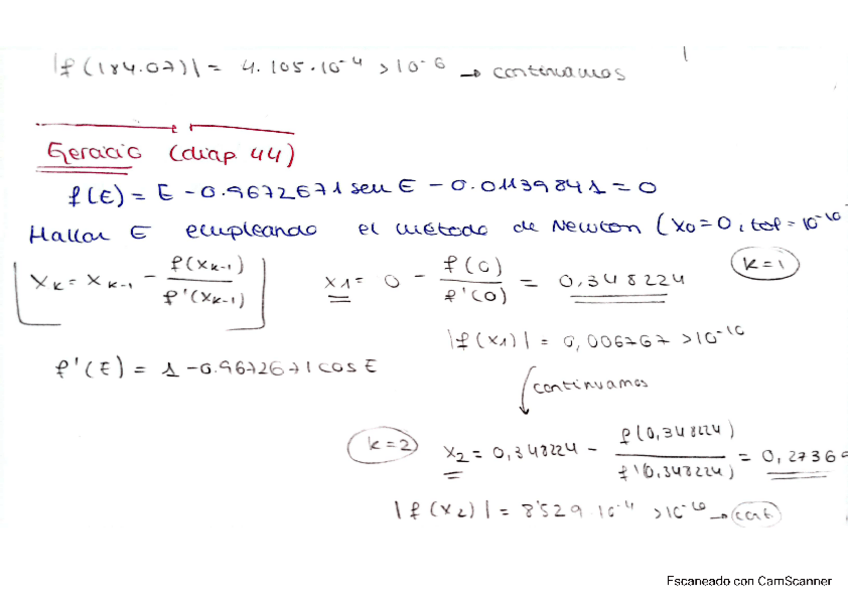 |f(184.07)| = 4.105·10⁻⁴ > 10⁻⁶ → continuamos
Ejercicio (diap 44)
f(E) = E - 0.9672671 sen E - 0.01139841 = 0
Hallar E empleando el método de Newton (x0=0, tol = 10⁻¹⁰
Xk = Xk-1 - f(Xk-1) / f'(Xk-1)
x1 = 0 - f(0) / f'(0) = 0,348224
k=1
|f(x1)| = 0,006767 > 10⁻¹⁰
f'(E) = 1 - 0.9672671 cos E
continuamos
k=2
x2 = 0,348224 - f(0,348224) / f'(0,348224) = 0,27369
|f(x2)| = 8'529·10⁻⁴ > 10⁻¹⁰ → cont.
Escaneado con CamScanner